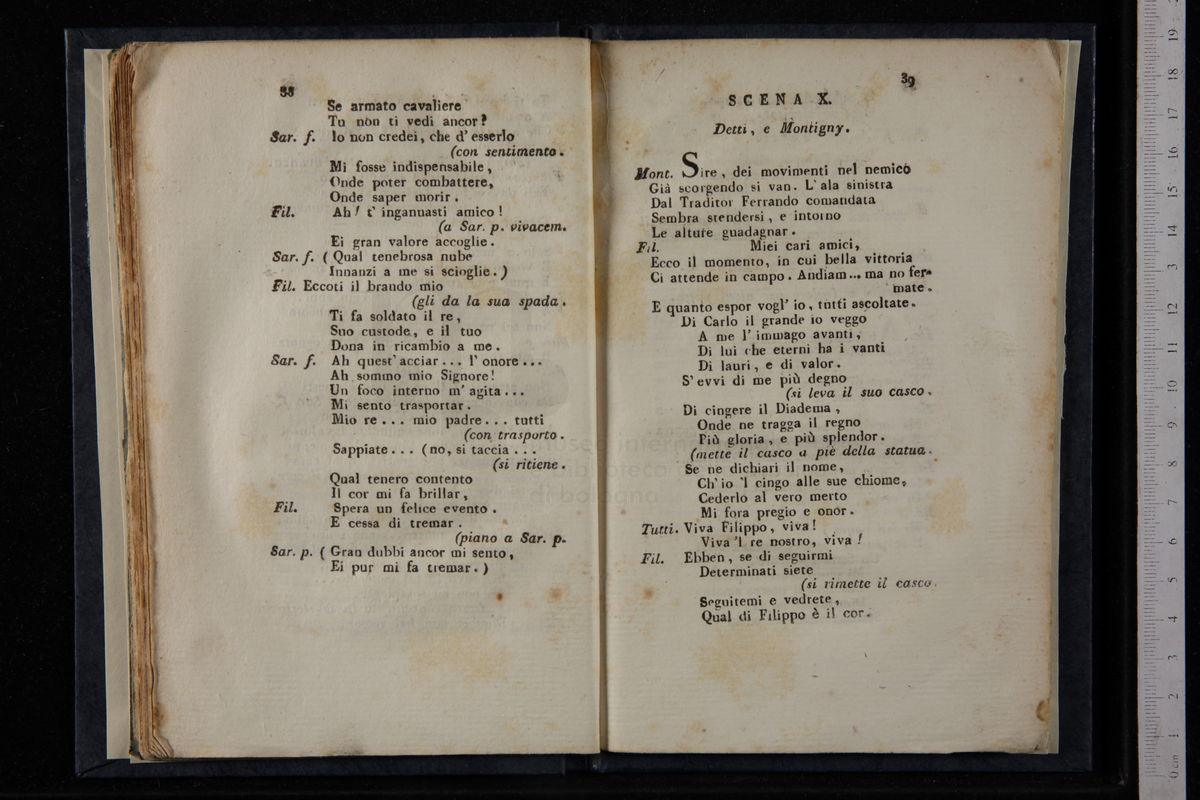 38
Se armato cavaliere
Tu non ti vedi ancor?
Sar. f. Io non credei, che d' esserlo
(con sentimento.
Mi fosse indispensabile,
Onde poter combattere,
Onde saper morir.
Fil. Ah! t' ingannasti amico!
(a Sar. p. vivacem.
Ei gran valore accoglie.
Sar. f. ( Qual tenebrosa nube
Innanzi a me si scioglie.)
Fil. Eccoti il brando mio
(gli da la sua spada.
Ti fa soldato il re,
Suo custode, e il tuo
Dona in ricambio a me.
Sar. f. Ah quest' acciar... l' onore...
Ah sommo mio Signore!
Un foco interno m' agita...
Mi sento trasportar.
Mio re... mio padre... tutti
(con trasporto.
Sappiate... (no, si taccia...
(si ritiene.
Qual tenero contento
Il cor mi fa brillar,
Fil. Spera un felice evento.
E cessa di tremar.
(piano a Sar. p.
Sar. p. ( Gran dubbi ancor mi sento,
Ei pur mi fa tremar.)
39
SCENA X.
Detti, e Montigny.
Mont. Sire, dei movimenti nel nemico
Già scorgendo si van. L' ala sinistra
Dal Traditor Ferrando comandata
Sembra stendersi, e intorno
Le alture guadagnar.
Fil. Miei cari amici,
Ecco il momento, in cui bella vittoria
Ci attende in campo. Andiam... ma no fer-
mate.
E quanto espor vogl' io, tutti ascoltate.
Di Carlo il grande io veggo
A me l' immago avanti,
Di lui che eterni ha i vanti
Di lauri, e di valor.
S' evvi di me più degno
(si leva il suo casco.
Di cingere il Diadema,
Onde ne tragga il regno
Più gloria, e più splendor.
(mette il casco a piè della statua.
Se ne dichiari il nome,
Ch' io 'l cingo alle sue chiome,
Cederlo al vero merto
Mi fora pregio e onor.
Tutti. Viva Filippo, viva!
Viva 'l re nostro, viva!
Fil. Ebben, se di seguirmi
Determinati siete
(si rimette il casco.
Seguitemi e vedrete,
Qual di Filippo è il cor.